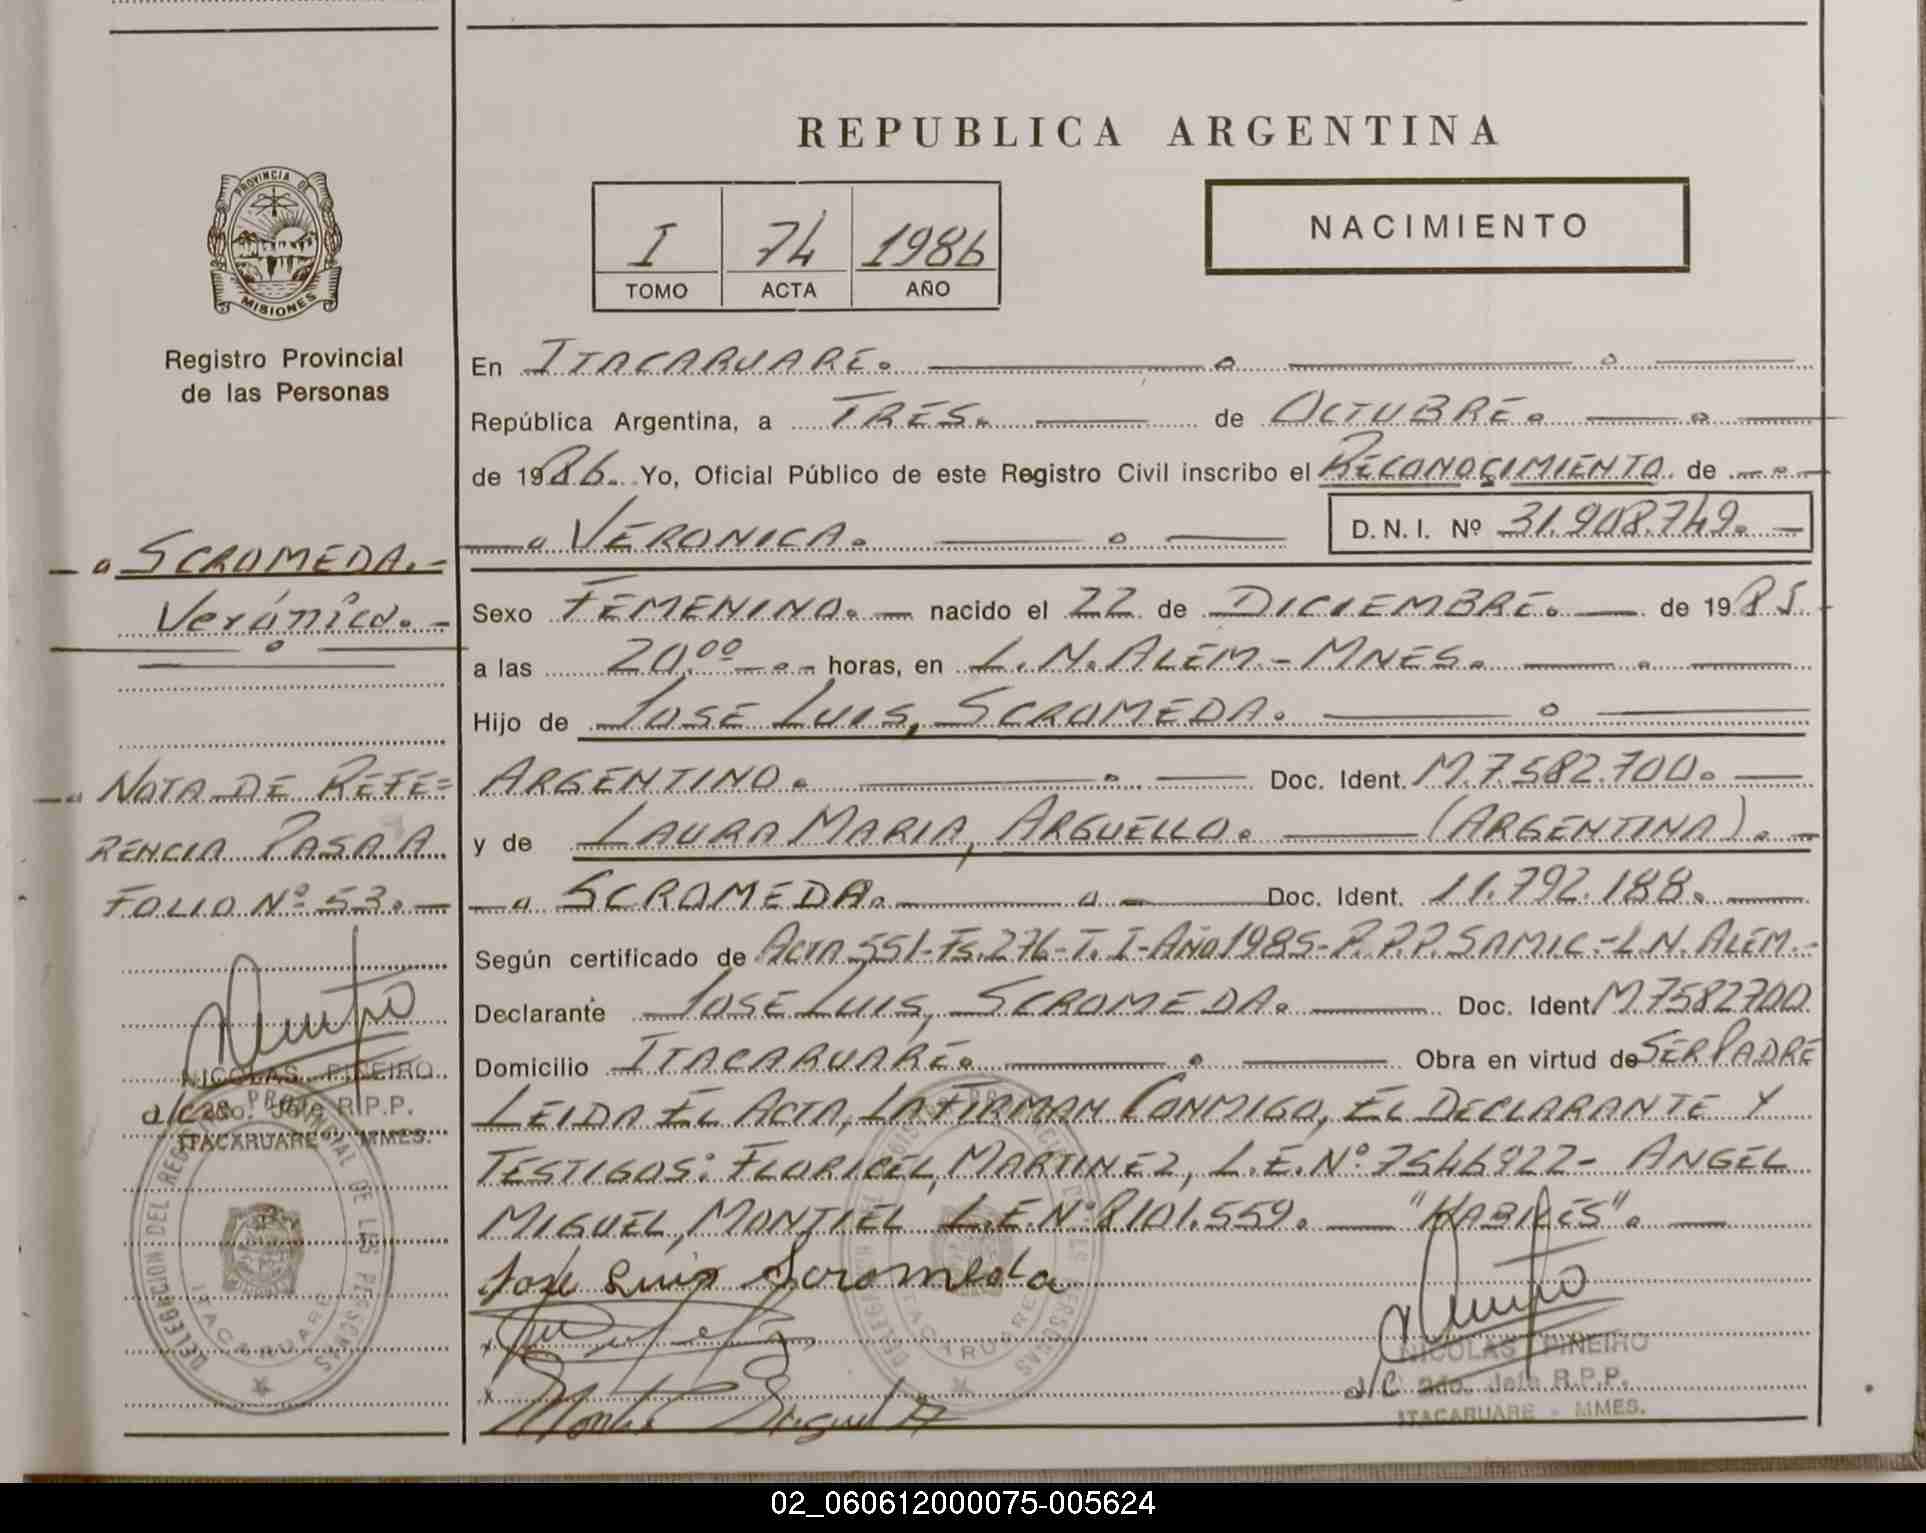 REPUBLICA ARGENTINA
PROVINCIA DE
MISIONES
Registro Provincial
de las Personas
I 74 1986
TOMO ACTA AÑO
NACIMIENTO
En ITACARUARE.
República Argentina, a TRES. de OCTUBRE.
de 1986. Yo, Oficial Público de este Registro Civil inscribo el RECONOCIMIENTO de
VERONICA. D.N.I. Nº 31.908.749.
SCROMEDA.
Verónica.
Sexo FEMENINO. nacido el 22 de DICIEMBRE. de 1985.
a las 20.00 horas, en L.N. ALEM - MNES.
Hijo de JOSE LUIS, SCROMEDA.
ARGENTINO. Doc. Ident. M.7.582.700.
y de LAURA MARIA, ARGUELLO. (ARGENTINA).
SCROMEDA. Doc. Ident. 11.792.188.
NOTA DE REFE=
RENCIA PASA A
FOLIO Nº 53.
Según certificado de ACTA 551-Fs.276-T.I-AÑO 1985-R.P.P. SAMIC.-L.N. ALEM.-
Declarante JOSE LUIS, SCROMEDA. Doc. Ident. M.7582700.
Domicilio ITACARUARE. Obra en virtud de SER PADRE
LEIDA EL ACTA, LA FIRMAN CONMIGO, EL DECLARANTE Y
TESTIGOS: FLORICEL, MARTINEZ, L.E.Nº 7546922- ANGEL
MIGUEL, MONTIEL L.E.Nº 8101.559. "HABILES".
José Luis Scromeda
NICOLAS PINEIRO
a/c 2do. Jefe R.P.P.
ITACARUARE - MMES.
DELEGACION DEL REGISTRO PROVINCIAL DE LAS PERSONAS
ITACARUARE
DELEGACION DEL REGISTRO PROVINCIAL DE LAS PERSONAS
ITACARUARE
NICOLAS PINEIRO
a/c 2do. Jefe R.P.P.
ITACARUARE - MMES.
02_060612000075-005624